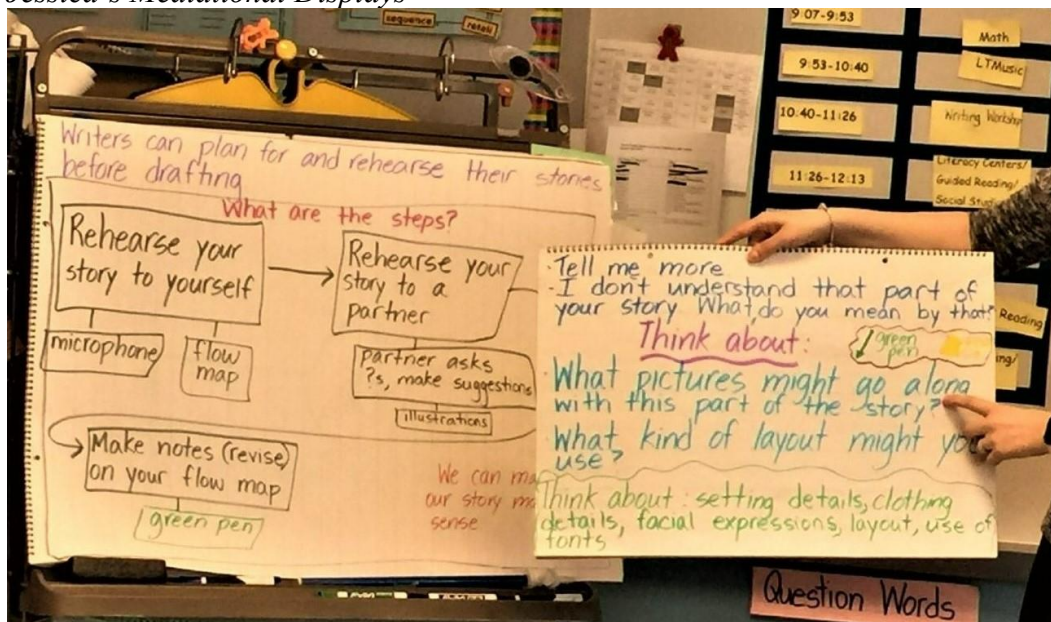 Jessica's Mediational Displays
sequence
retell
Writers can plan for and rehearse their stories
before drafting
What are the steps?
Rehearse your
story to yourself
microphone
flow
map
Rehearse your
story to a
partner
partner asks
?s, make suggestions
illustrations
Make notes (revise)
on your flow map
green pen
We can
our story
sense
Tell me more
I don't understand that part of
your story. What do you mean by that?
Think about:
green
pen
What pictures might go along
with this part of the story?
What kind of layout might you
use?
Think about: setting details, clothing
details, facial expressions, layout, use of
fonts
9:07-9:53
Math
9:53-10:40
LTMusic
10:40-11:26
Writing Workshop
11:26-12:13
Literacy Centers/
Guided Reading/
Social
Reading
Question Words